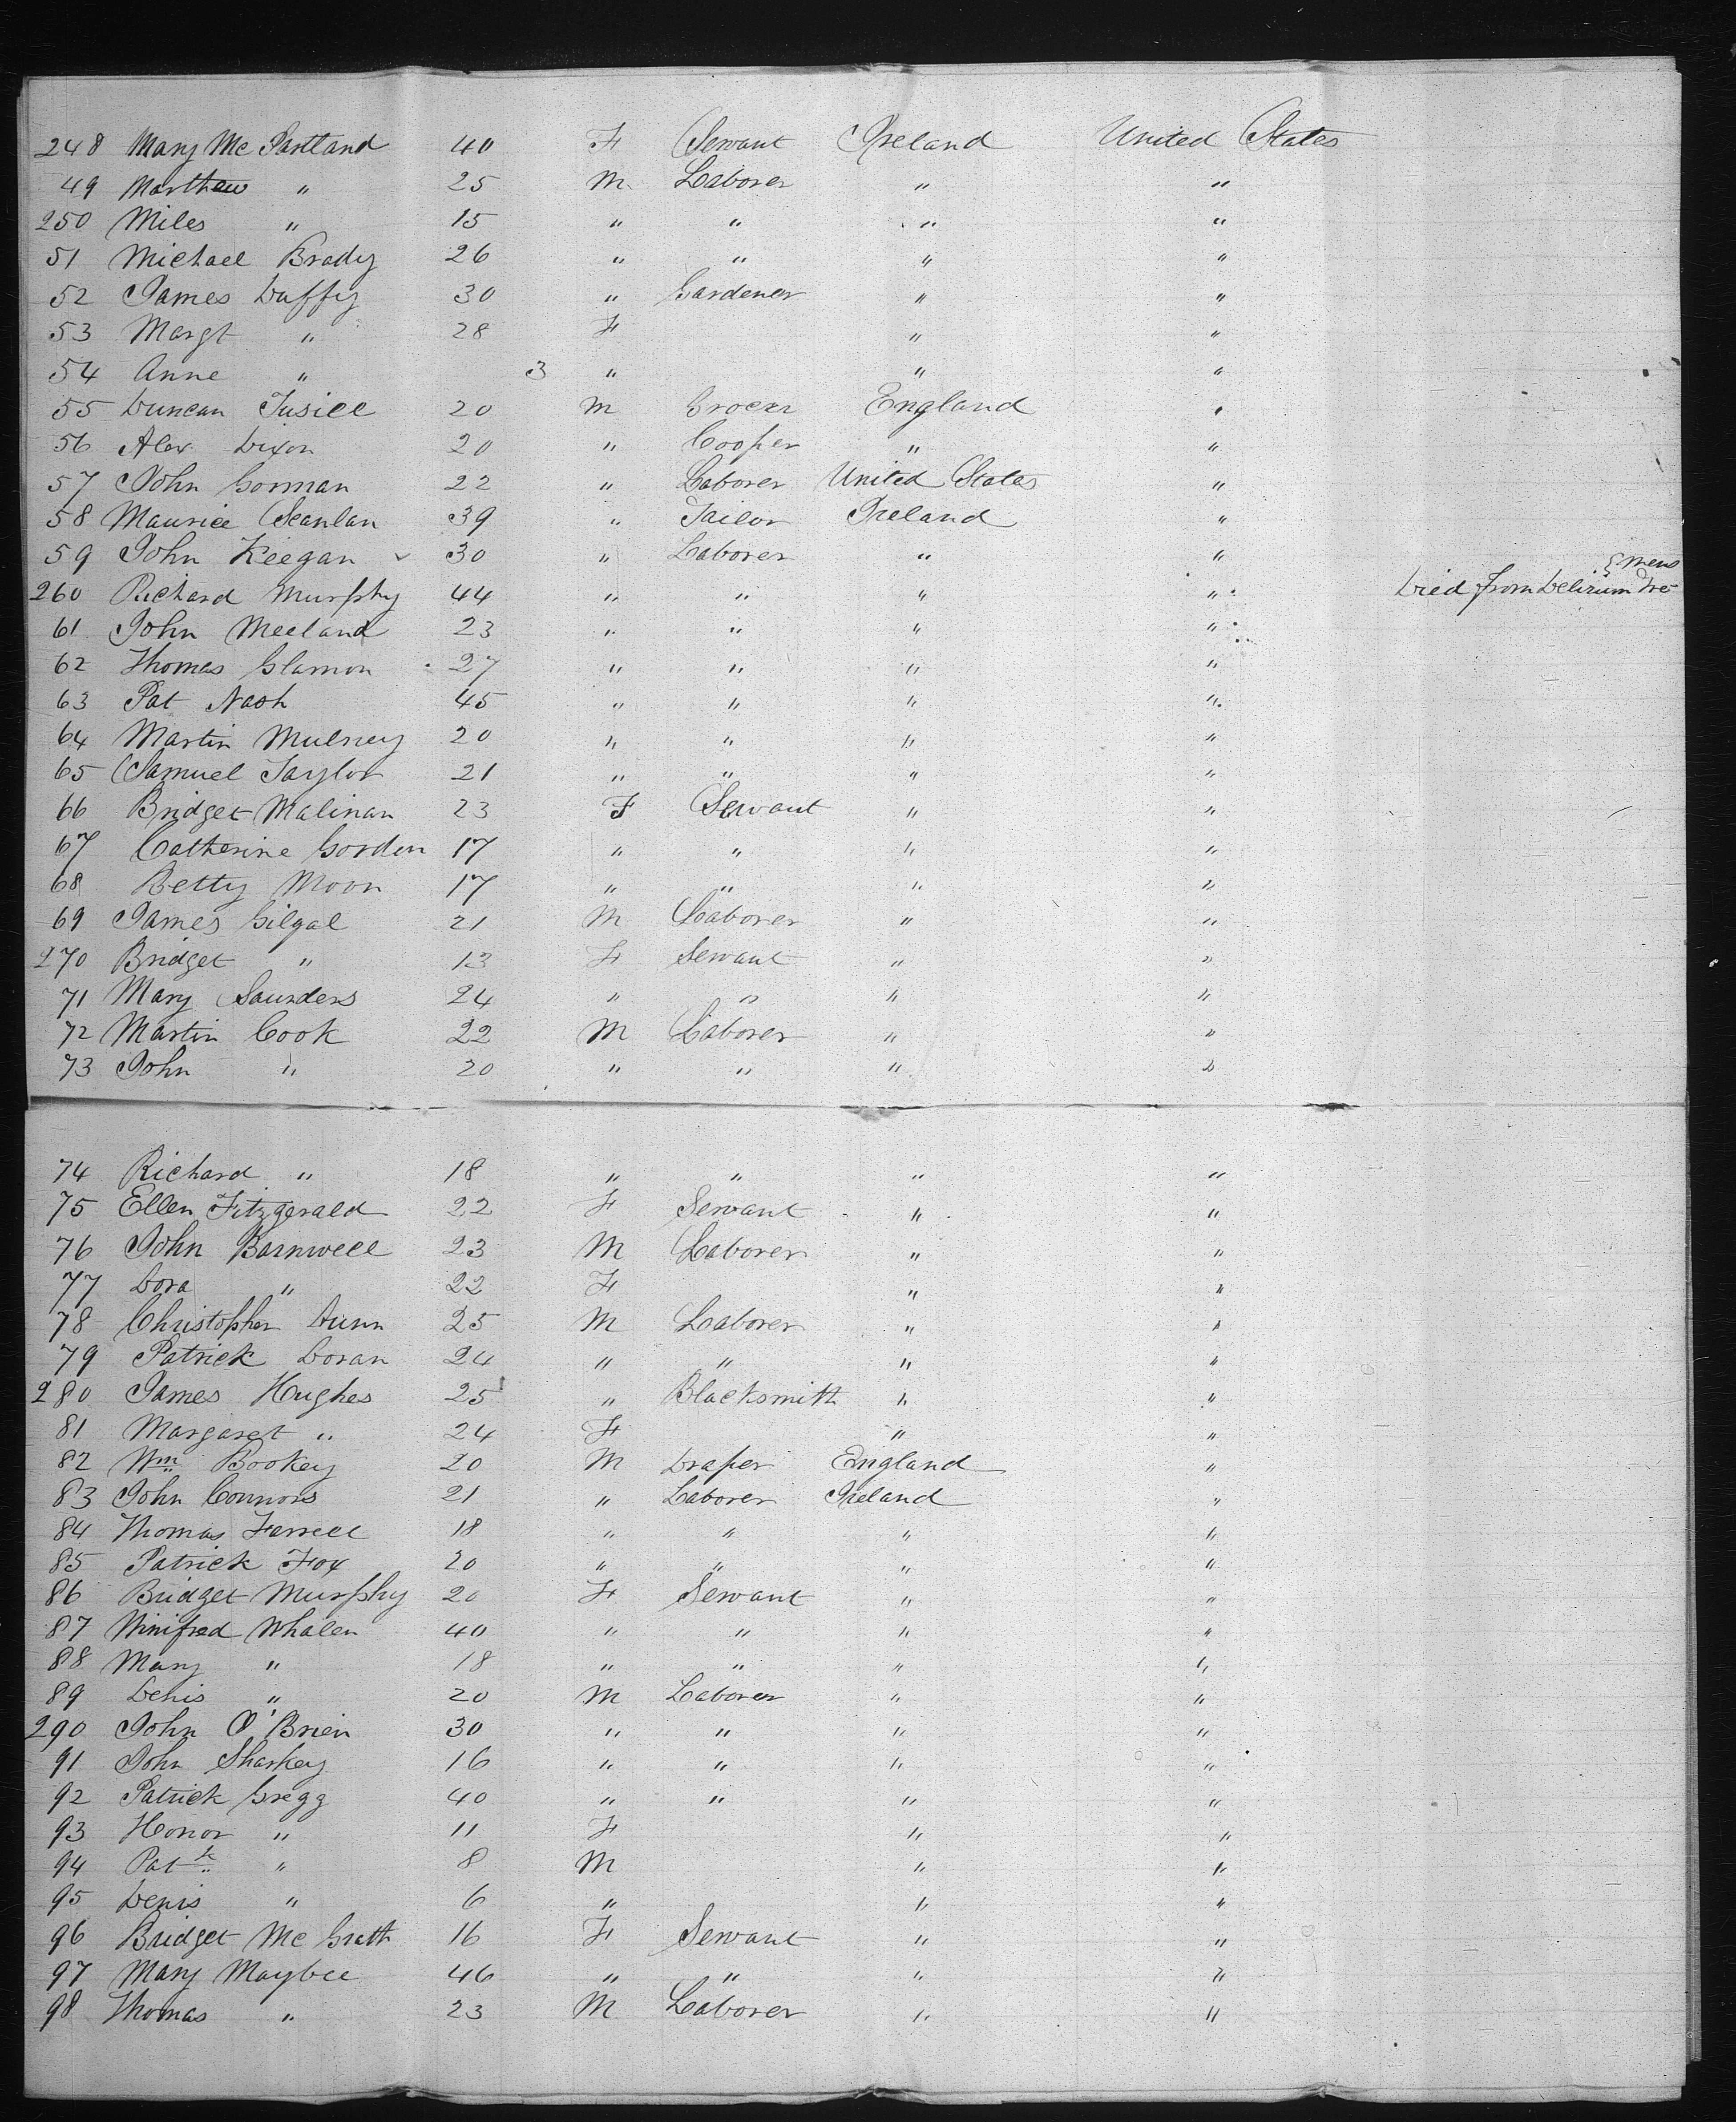 248 Mary Mc Partland 40 F Servant Ireland United States
49 Marthew " 25 M. Laborer " "
250 Miles " 15 " " " "
51 Michael Brady 26 " " " "
52 James Duffy 30 " Gardener " "
53 Margt " 28 F " "
54 Anne " 3 " " "
55 Duncan 20 M Grocer England "
56 Alex Dixon 20 " Cooper " "
57 John Gorman 22 " Laborer United States "
58 Maurice Scanlan 39 " Tailor Ireland "
59 John Keegan 30 " Laborer " "
260 Richard Murphy 44 " " " " Died from Delirium Tre-mens
61 John Meeland 23 " " " "
62 Thomas Glamon 27 " " " "
63 Pat Nash 45 " " " "
64 Martin Mulney 20 " " " "
65 Samuel Taylor 21 " " " "
66 Bridget Malinan 23 F Servant " "
67 Catherine Gorden 17 " " " "
68 Betty Moon 17 " " " "
69 James Gilgal 21 M Laborer " "
270 Bridget " 13 F Servant " "
71 Mary Saunders 24 " " " "
72 Martin Cook 22 M Laborer " "
73 John " 20 " " " "
74 Richard " 18 " " " "
75 Ellen Fitzgerald 22 F Servant " "
76 John Barnwell 23 M Laborer " "
77 Dora " 22 F " "
78 Christopher Dunn 25 M Laborer " "
79 Patrick Doran 24 " " " "
280 James Hughes 25 " Blacksmith " "
81 Margaret " 24 F " "
82 Wm Bookey 20 M Draper England "
83 John Connors 21 " Laborer Ireland "
84 Thomas Farrell 18 " " " "
85 Patrick Fox 20 " " " "
86 Bridget Murphy 20 F Servant " "
87 Winifred Whalen 40 " " " "
88 Mary " 18 " " " "
89 Denis " 20 M Laborer " "
290 John O'Brien 30 " " " "
91 John Sharkey 16 " " " "
92 Patrick Gregg 40 " " " "
93 Honor " 11 F " "
94 Patk " 8 M " "
95 Denis " 6 " " "
96 Bridget Mc Grath 16 F Servant " "
97 Mary Maybee 46 " " " "
98 Thomas " 23 M Laborer " "